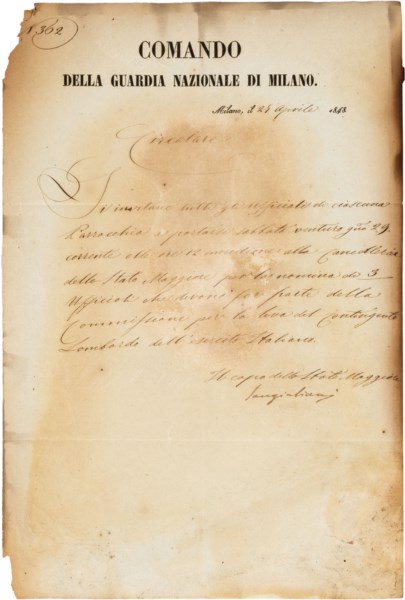 N 362
COMANDO
DELLA GUARDIA NAZIONALE DI MILANO.
Milano, il 24 Aprile 1848.
Circolare
Si invitano tutti gli Ufficiali di ciascuna
Parrocchia a portarsi sabbato venturo 29
corrente alle ore 12 meridiane alla Cancelleria
dello Stato Maggiore per la nomina di 3
Ufficiali che devono far parte della
Commissione per la leva del Contingente
Lombardo dell'esercito Italiano.
Il capo dello Stato Maggiore